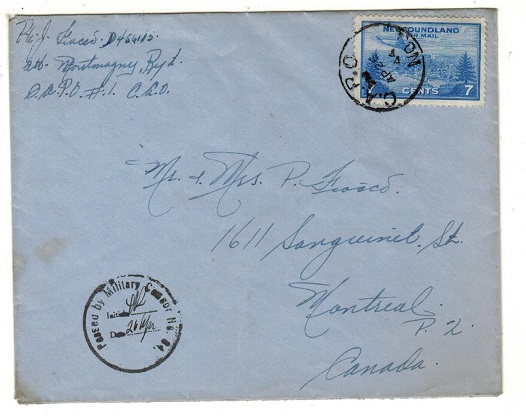 Pte. J. Fiocco. D156115
Montmagny, Reg'd.
C.A.P.O. #1. C.A.O.
NEWFOUNDLAND
AIR MAIL
7 CENTS 7
C.A.P.O.
AP 26
Mr. & Mrs. P. Fiocco.
1611 Sanguinet. St.
Montreal.
P.Q.
Canada.
Passed by Military Censor No. 84.
Initials
Date 26 Apr